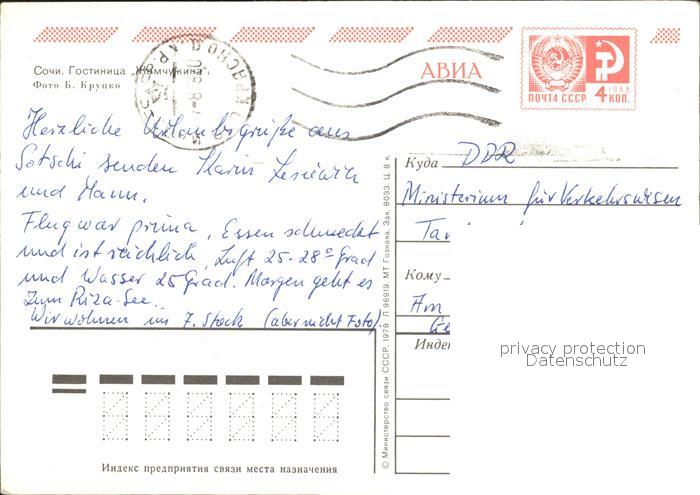 Сочи. Гостиница „Жемчужина"
Фото Б. Круцко
АВИА
ПОЧТА СССР 4 КОП.
1966
Herzliche Urlaubsgrüße aus
Sotschi senden Karin
und Mann.
Flug war prima, Essen schmeckt
und ist reichlich, Luft 25-28° Grad
und Wasser 25 Grad. Morgen geht es
zum Riza-See.
Wir wohnen im 7. Stock (aber nicht Foto).
Куда DDR
Ministerium für Verkehrswesen
Кому
Am
Индек
privacy protection
Datenschutz
© Министерство связи СССР, 1978. Л 96919. МТ Гознака. Зак. 8033. Ц. 8 к.
Индекс предприятия связи места назначения